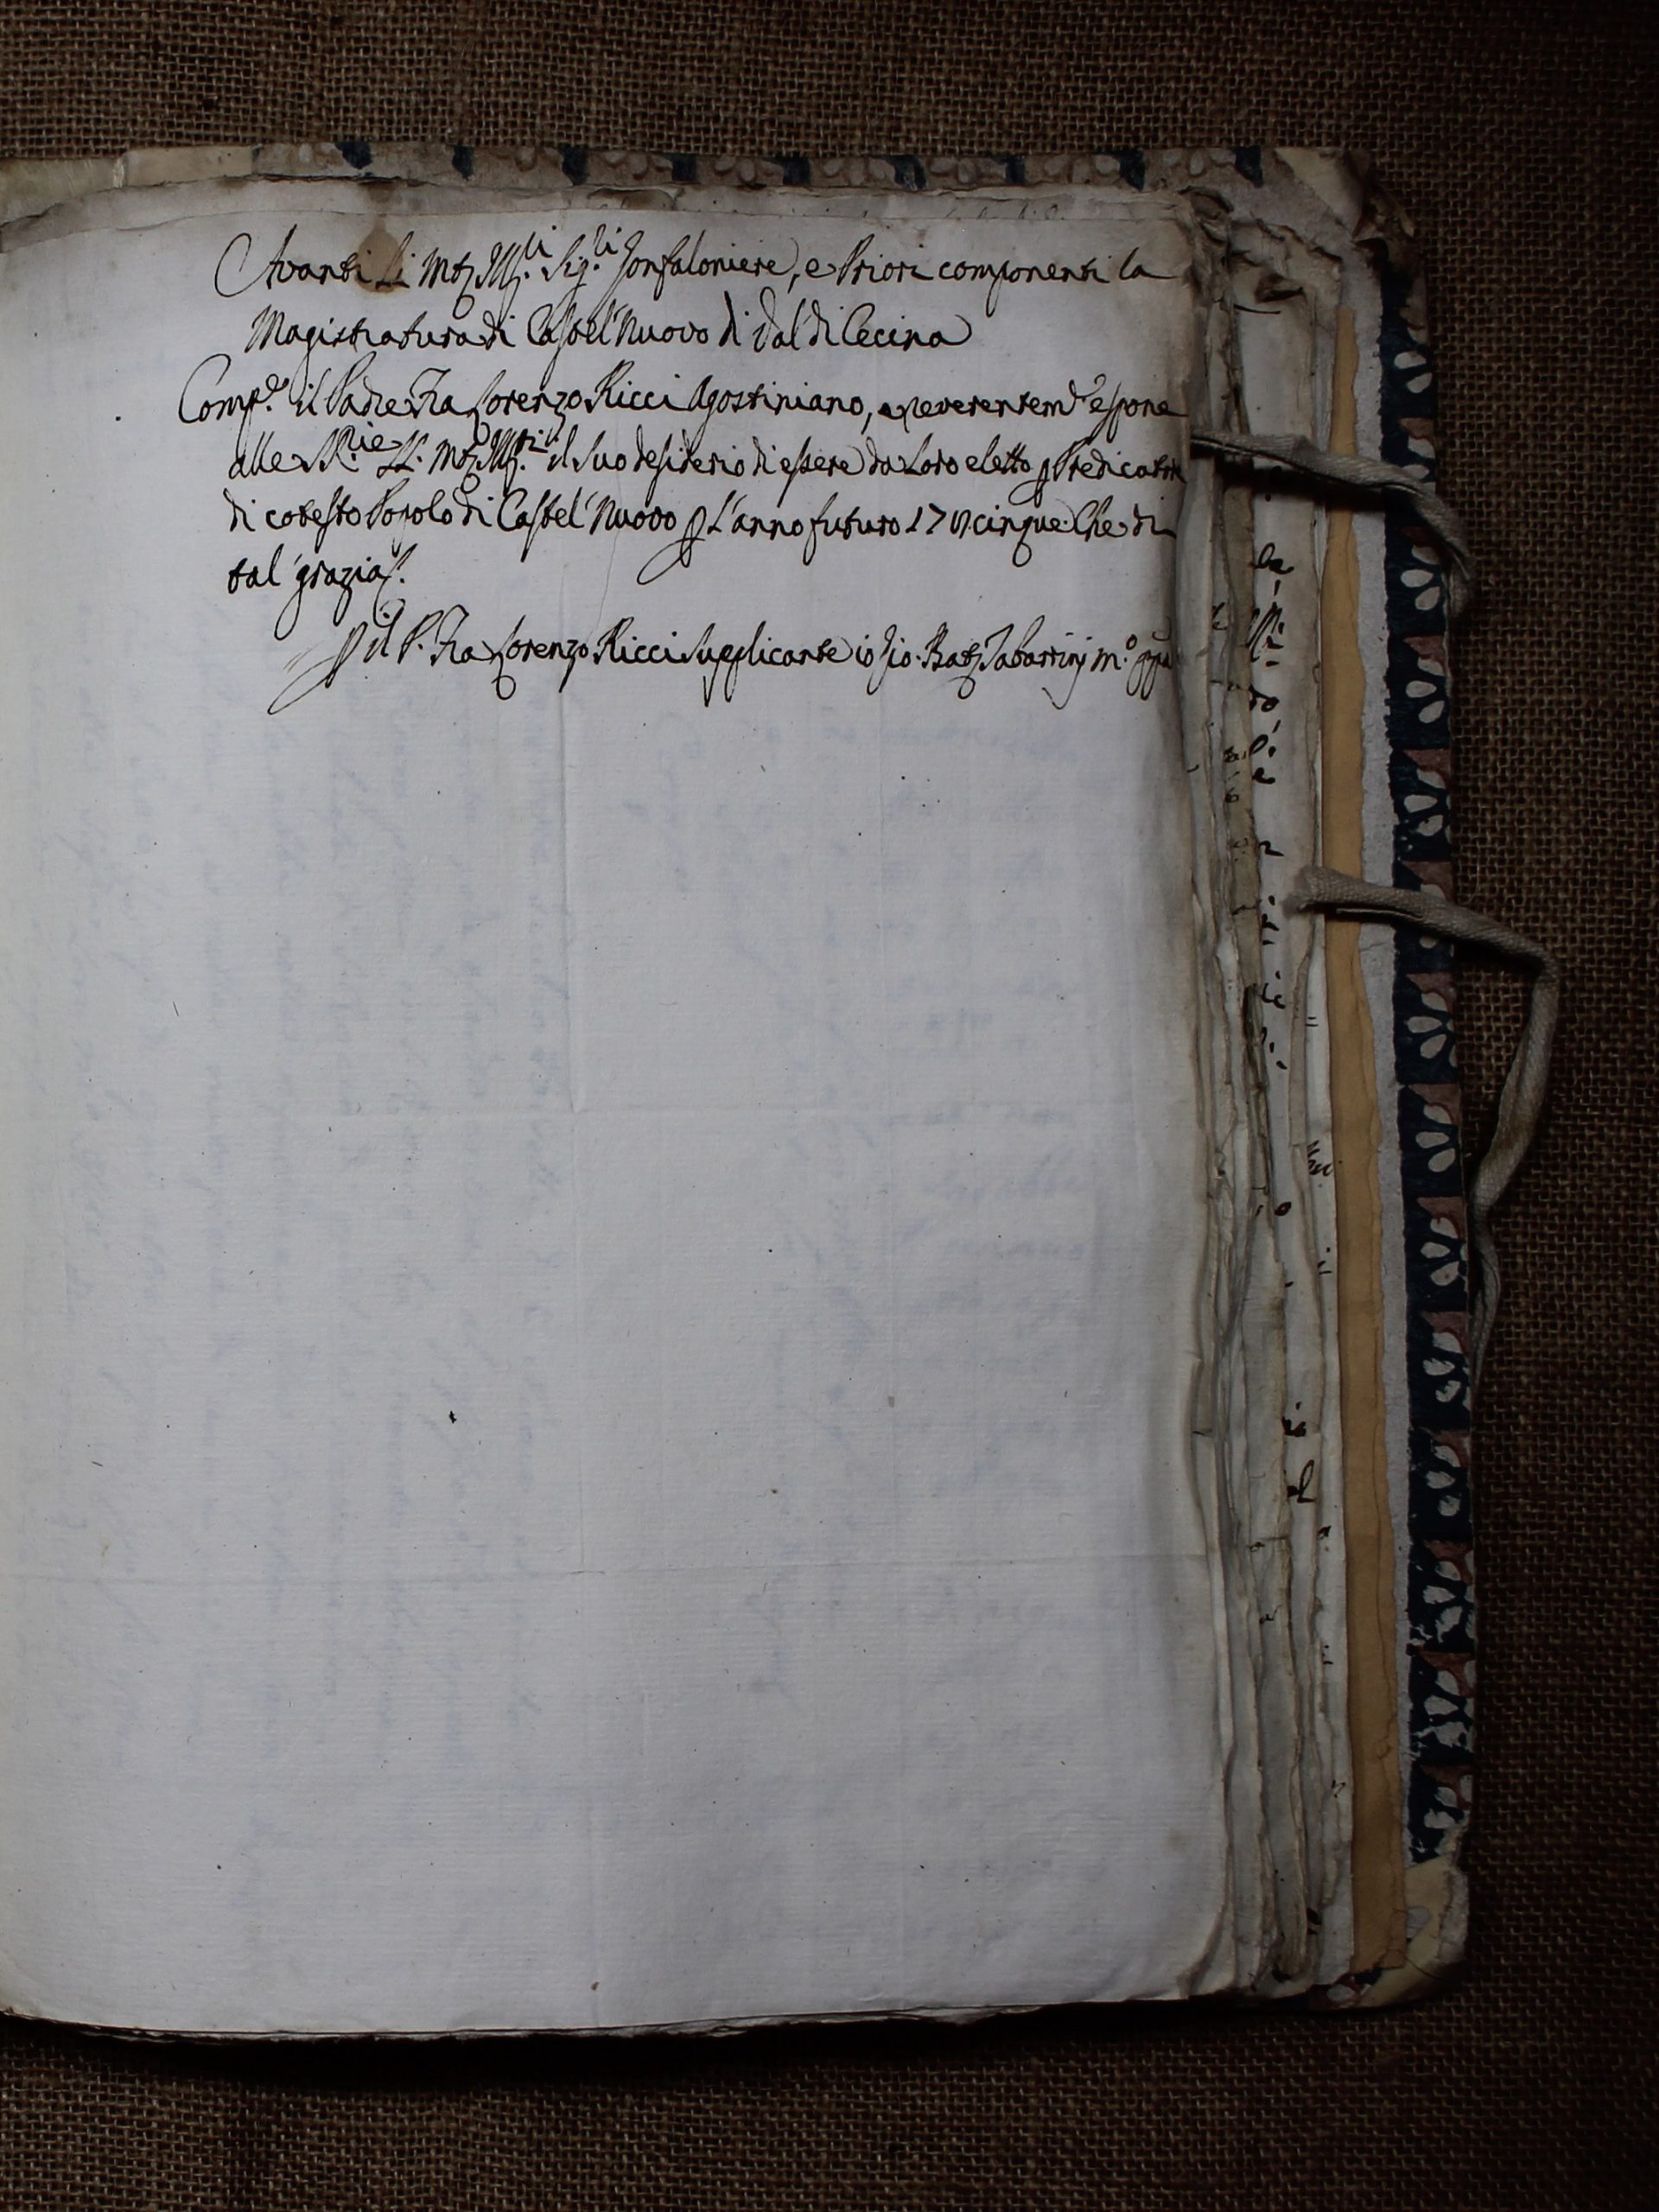 Avanti Li Mto Ill:ri Sig:ri Gonfaloniere, e Priori componenti la
Magistratura di Castel' Nuovo di Val' di Cecina
Comp:e il Padre Fra Lorenzo Ricci Agostiniano, e reverentem:e espone
alle SS:rie LL: Mto Ill:ri il suo desiderio di essere da Loro eletto p Predicatore
di cotesto Popolo di Castel' Nuovo p L'anno futuro cinque. Che di
tal' grazia.
p il P. Fra Lorenzo Ricci Supplicante io Gio: Batta Tabarrinj m:o ppa